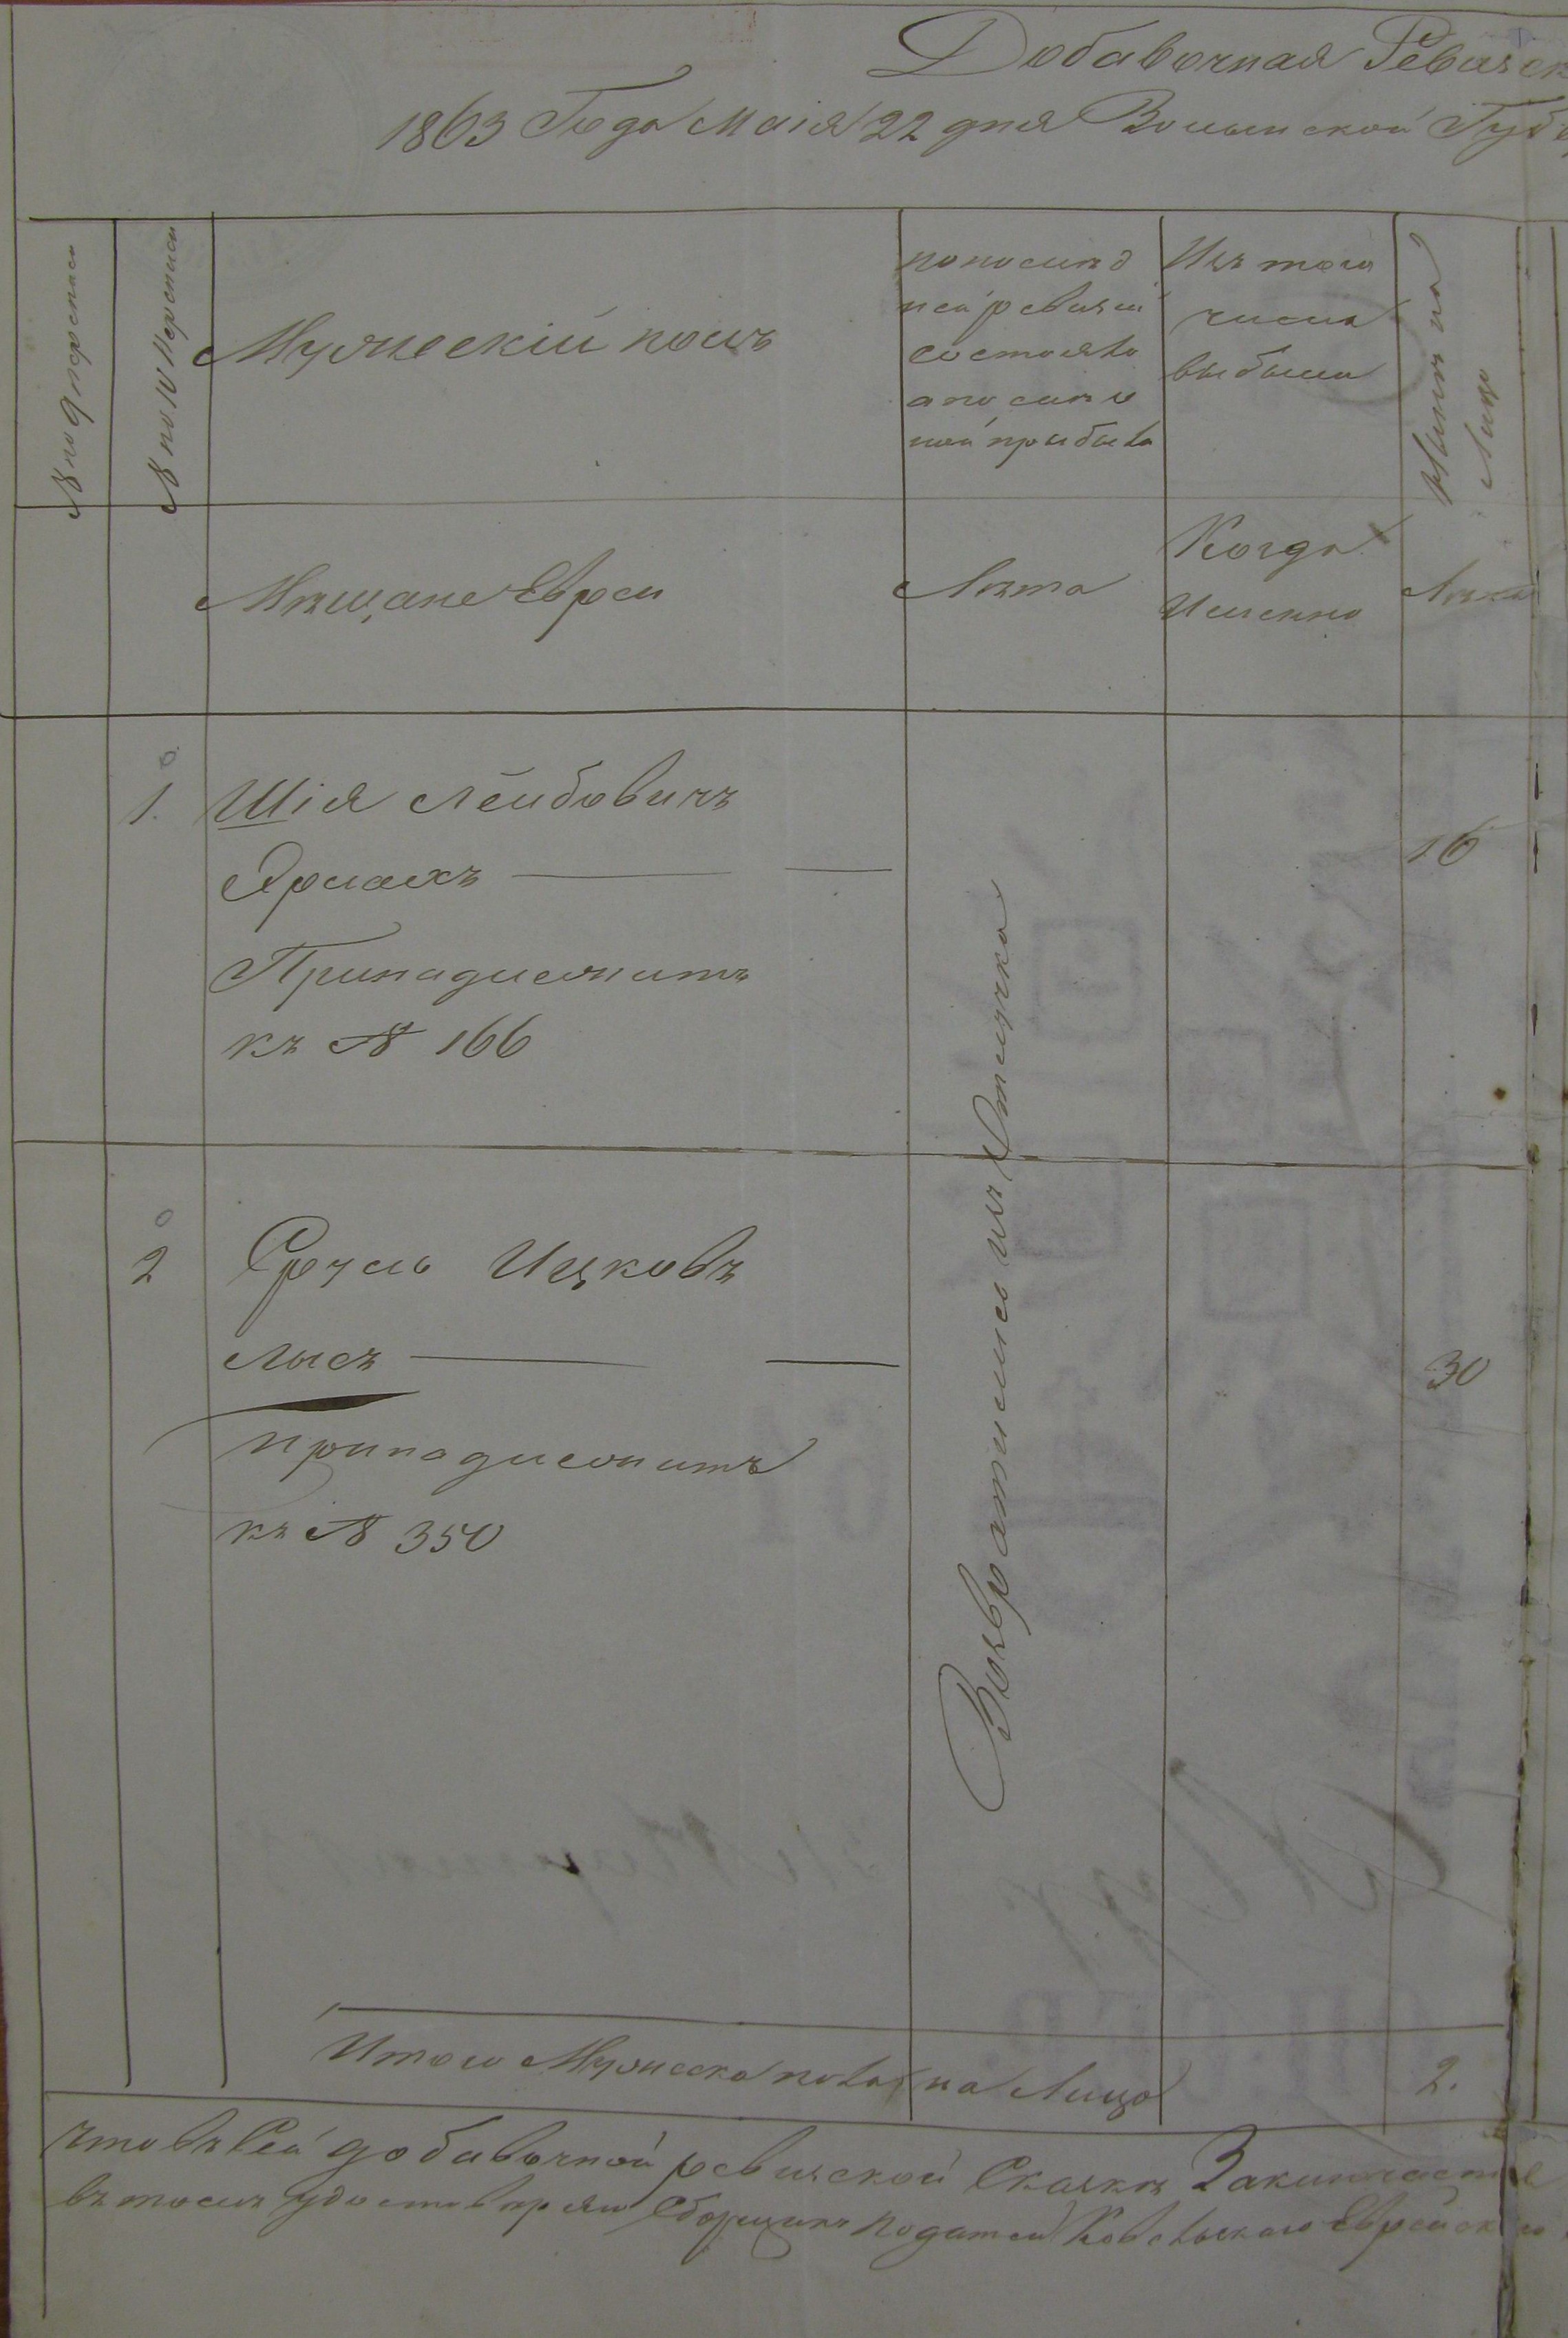 Добавочная Ревизск
1863 Года Маія 22 дня Волынской Губ
№ по 9 переписи
№ по 10 переписи
Мужескій полъ
по послѣд
ней ревизіи
состояло
а послѣ о
ной прибыло
Изъ того
числа
выбыли
Нынѣ на
Лицо
Мѣщане Евреи
Лѣта
Когда
Именно
Лѣта
1. Шія Лейбовичъ
Ярмахъ
16
Принадлежитъ
къ № 166
2 Сруль Ицковъ
Лысъ
30
принадлежитъ
къ № 350
Возвратились изъ Отлучки
Итого Мужеска пола на Лицо 2.
что въ Сей добавочной ревизской Сказкѣ Заключается
въ томъ удостовѣряю Сборщикъ податей Ковельскаго Еврейск